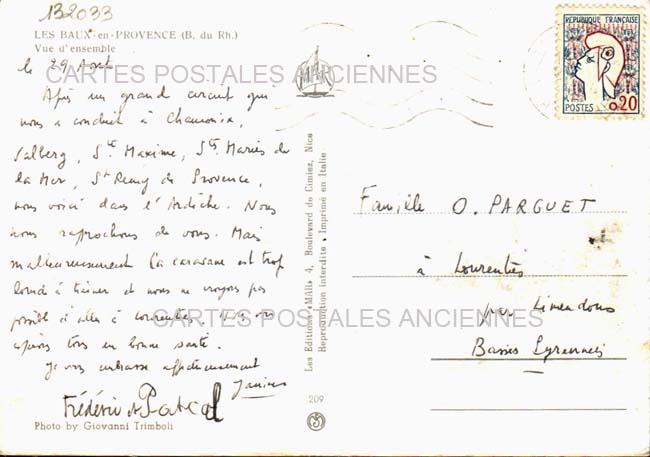 132033
LES BAUX-en-PROVENCE (B. du Rh.)
Vue d'ensemble
le 29 Août
CARTES POSTALES ANCIENNES
Après un grand circuit qui
nous a conduit à Chamonix,
Valberg, Ste Maxime, Stes Maries de
la Mer, St Remy de Provence,
nous voici dans l'Ardèche. Nous
nous rapprochons de vous. Mais
malheureusement la caravane est trop
lourde à trainer et nous ne voyons pas
possible d'aller à Lourenties.
CARTES POSTALES ANCIENNES
tous en bonne santé.
Je vous embrasse affectueusement
Janine
Frédéric et Pascal
Photo by Giovanni Trimboli
Les Editions «MAR» 4, Boulevard de Cimiez, Nice
Reproduction interdite - Imprimé en Italie
209
REPUBLIQUE FRANÇAISE
POSTES 0,20
Famille O. PARGUET
à Lourenties
par Limendous
Basses Pyrennées